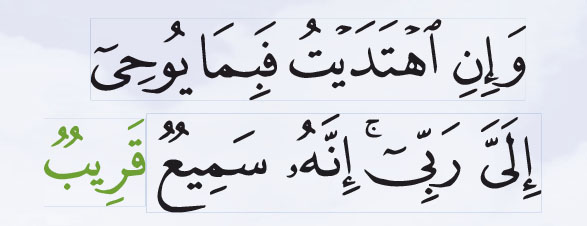 وَإِنِ ٱهْتَدَيْتُ فَبِمَا يُوحِىٓ
إِلَىَّ رَبِّىٓ ۚ إِنَّهُۥ سَمِيعٌ قَرِيبٌ